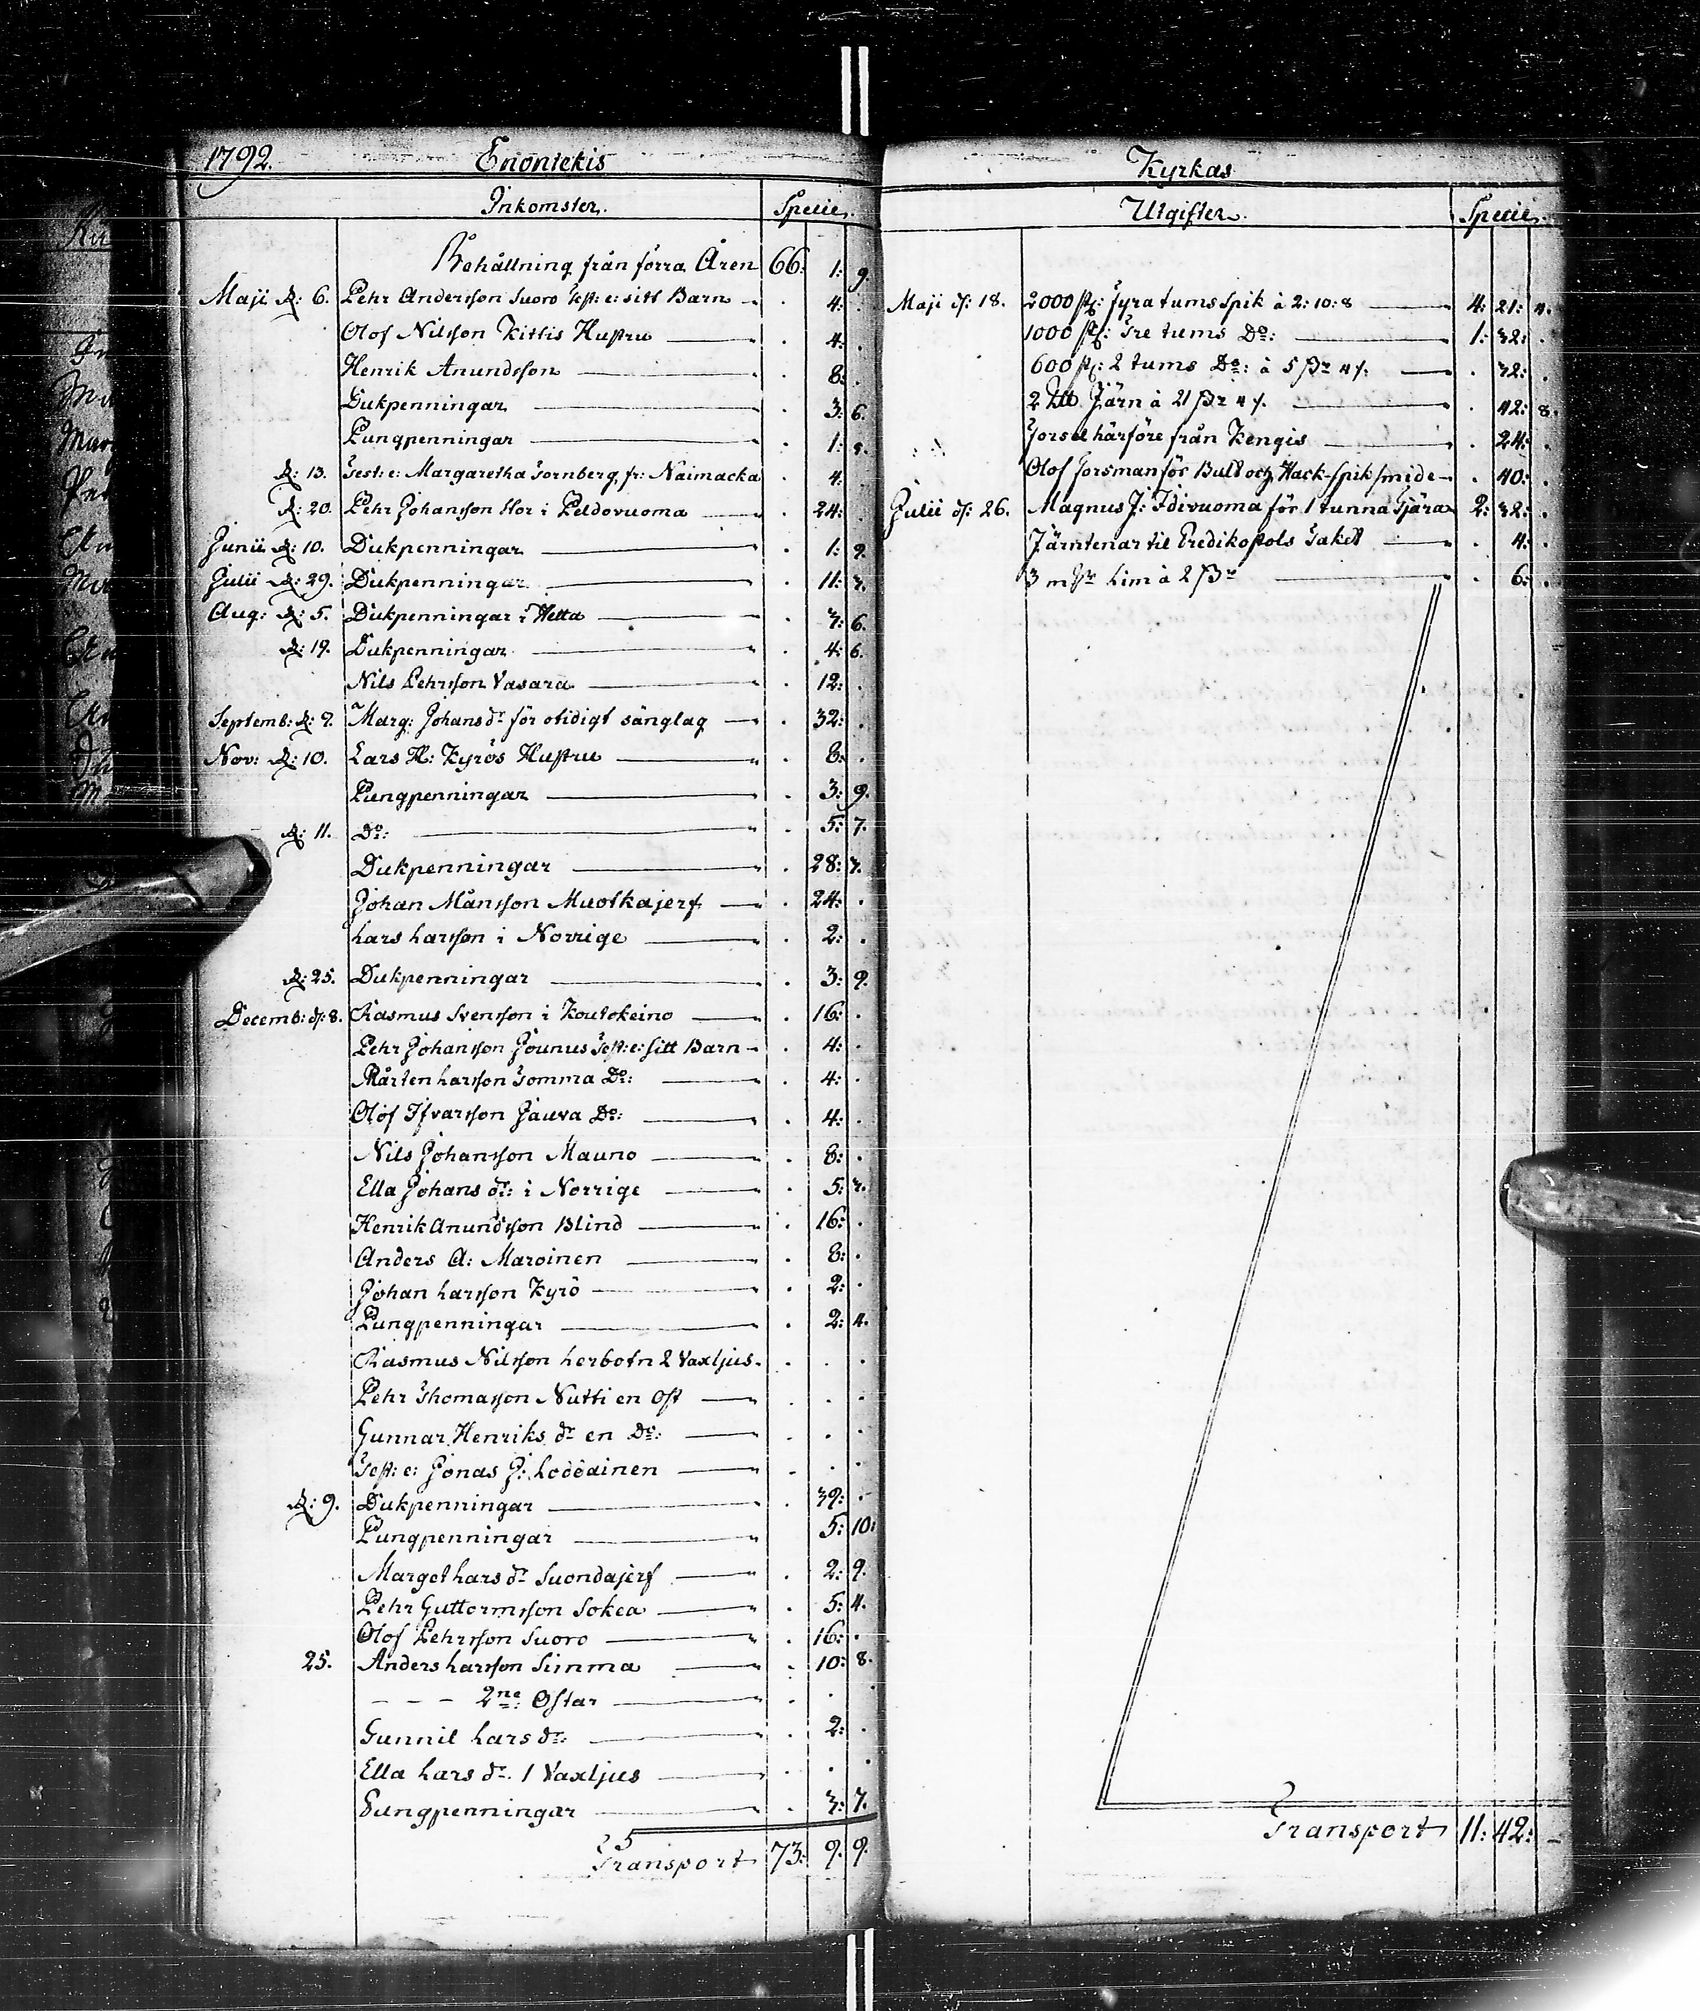 1792. Enontekis
Inkomster. Specie.
Behållning från förra Åren 66: 1: 9.
Maji d: 6. Pehr Andersson Suoro Test: e: sitt Barn 4:
Olof Nilsson Kittis Hustru 4:
Henrik Anundsson 8:
Dukpenningar 3: 6.
Pungpenningar 1:
d: 13. Test: e: Margaretha Tornberg fr: Naimacka 4:
d: 20. Pehr Johansson Stor i Peldovuoma 24:
Junii d: 10. Dukpenningar 1: 9.
Julii d: 29. Dukpenningar 11: 3.
Aug: d: 5. Dukpenningar i Hetta 7: 6.
d: 19. Dukpenningar 4: 6.
Nils Pehrsson Vasara 12:
Septemb: d: 9. Marg: Johans dr för otidigt sänglag 32:
Nov: d: 10. Lars H: Kyrös Hustru 8:
Pungpenningar 3: 9.
d: 11. Do: 5: 7.
Dukpenningar 28: 3.
Johan Månsson Muotkajerf 24:
Lars Larsson i Norrige 2:
d: 25. Dukpenningar 3: 9.
Decemb: d: 8. Rasmus Svensson i Koutokeino 16:
Pehr Johansson Jounus Test: e: sitt Barn 4:
Mårten Larsson Tomma Do: 4:
Olof Ifvarsson Jauva Do: 4:
Nils Johansson Mauno 8:
Ella Johans dr: i Norrige 5: 3.
Henrik Anundsson Blind 16:
Anders A: Maroinen 8:
Johan Larsson Kyrö 2:
Pungpenningar 2: 4.
Rasmus Nilsson Lerbotn 2 Vaxljus
Pehr Thomasson Nutti en Ost
Gunnar Henriks dr en Do:
Test: e: Jonas J: Loddainen
d: 9. Dukpenningar 39:
Pungpenningar 5: 10:
Marget Lars dr Suondajerf 2: 9.
Pehr Guttormsson Sokea 5: 4.
Olof Pehrsson Suoro 16:
25. Anders Larsson Simma 10: 8.
– – – 2ne Ostar
Gunnil Lars dr: 2:
Ella Lars dr. 1 Vaxljus
Pungpenningar 3: 7.
Transport 73: 9. 9.
Kyrkas
Utgifter. Specie.
Maji d: 18. 2000 st: fyra tums Spik à 2: 10: 8 4: 21: 4.
1000 st: Tre tums Do: 1: 32:
600 st: 2 tums Do: à 5 ßr 4 32:
2 Järn à 21 ßr 4 42: 8.
Forsel härföre från Kengis 24:
Olof Forsman för Bult och Hack-spik smide 40:
Julii d: 26. Magnus J: Idivuoma för 1 tunna Tjära 2: 32:
Järntenar til Predikostols Taket 4:
3 Lim à 2 ßr 6:
Transport 11: 42: –